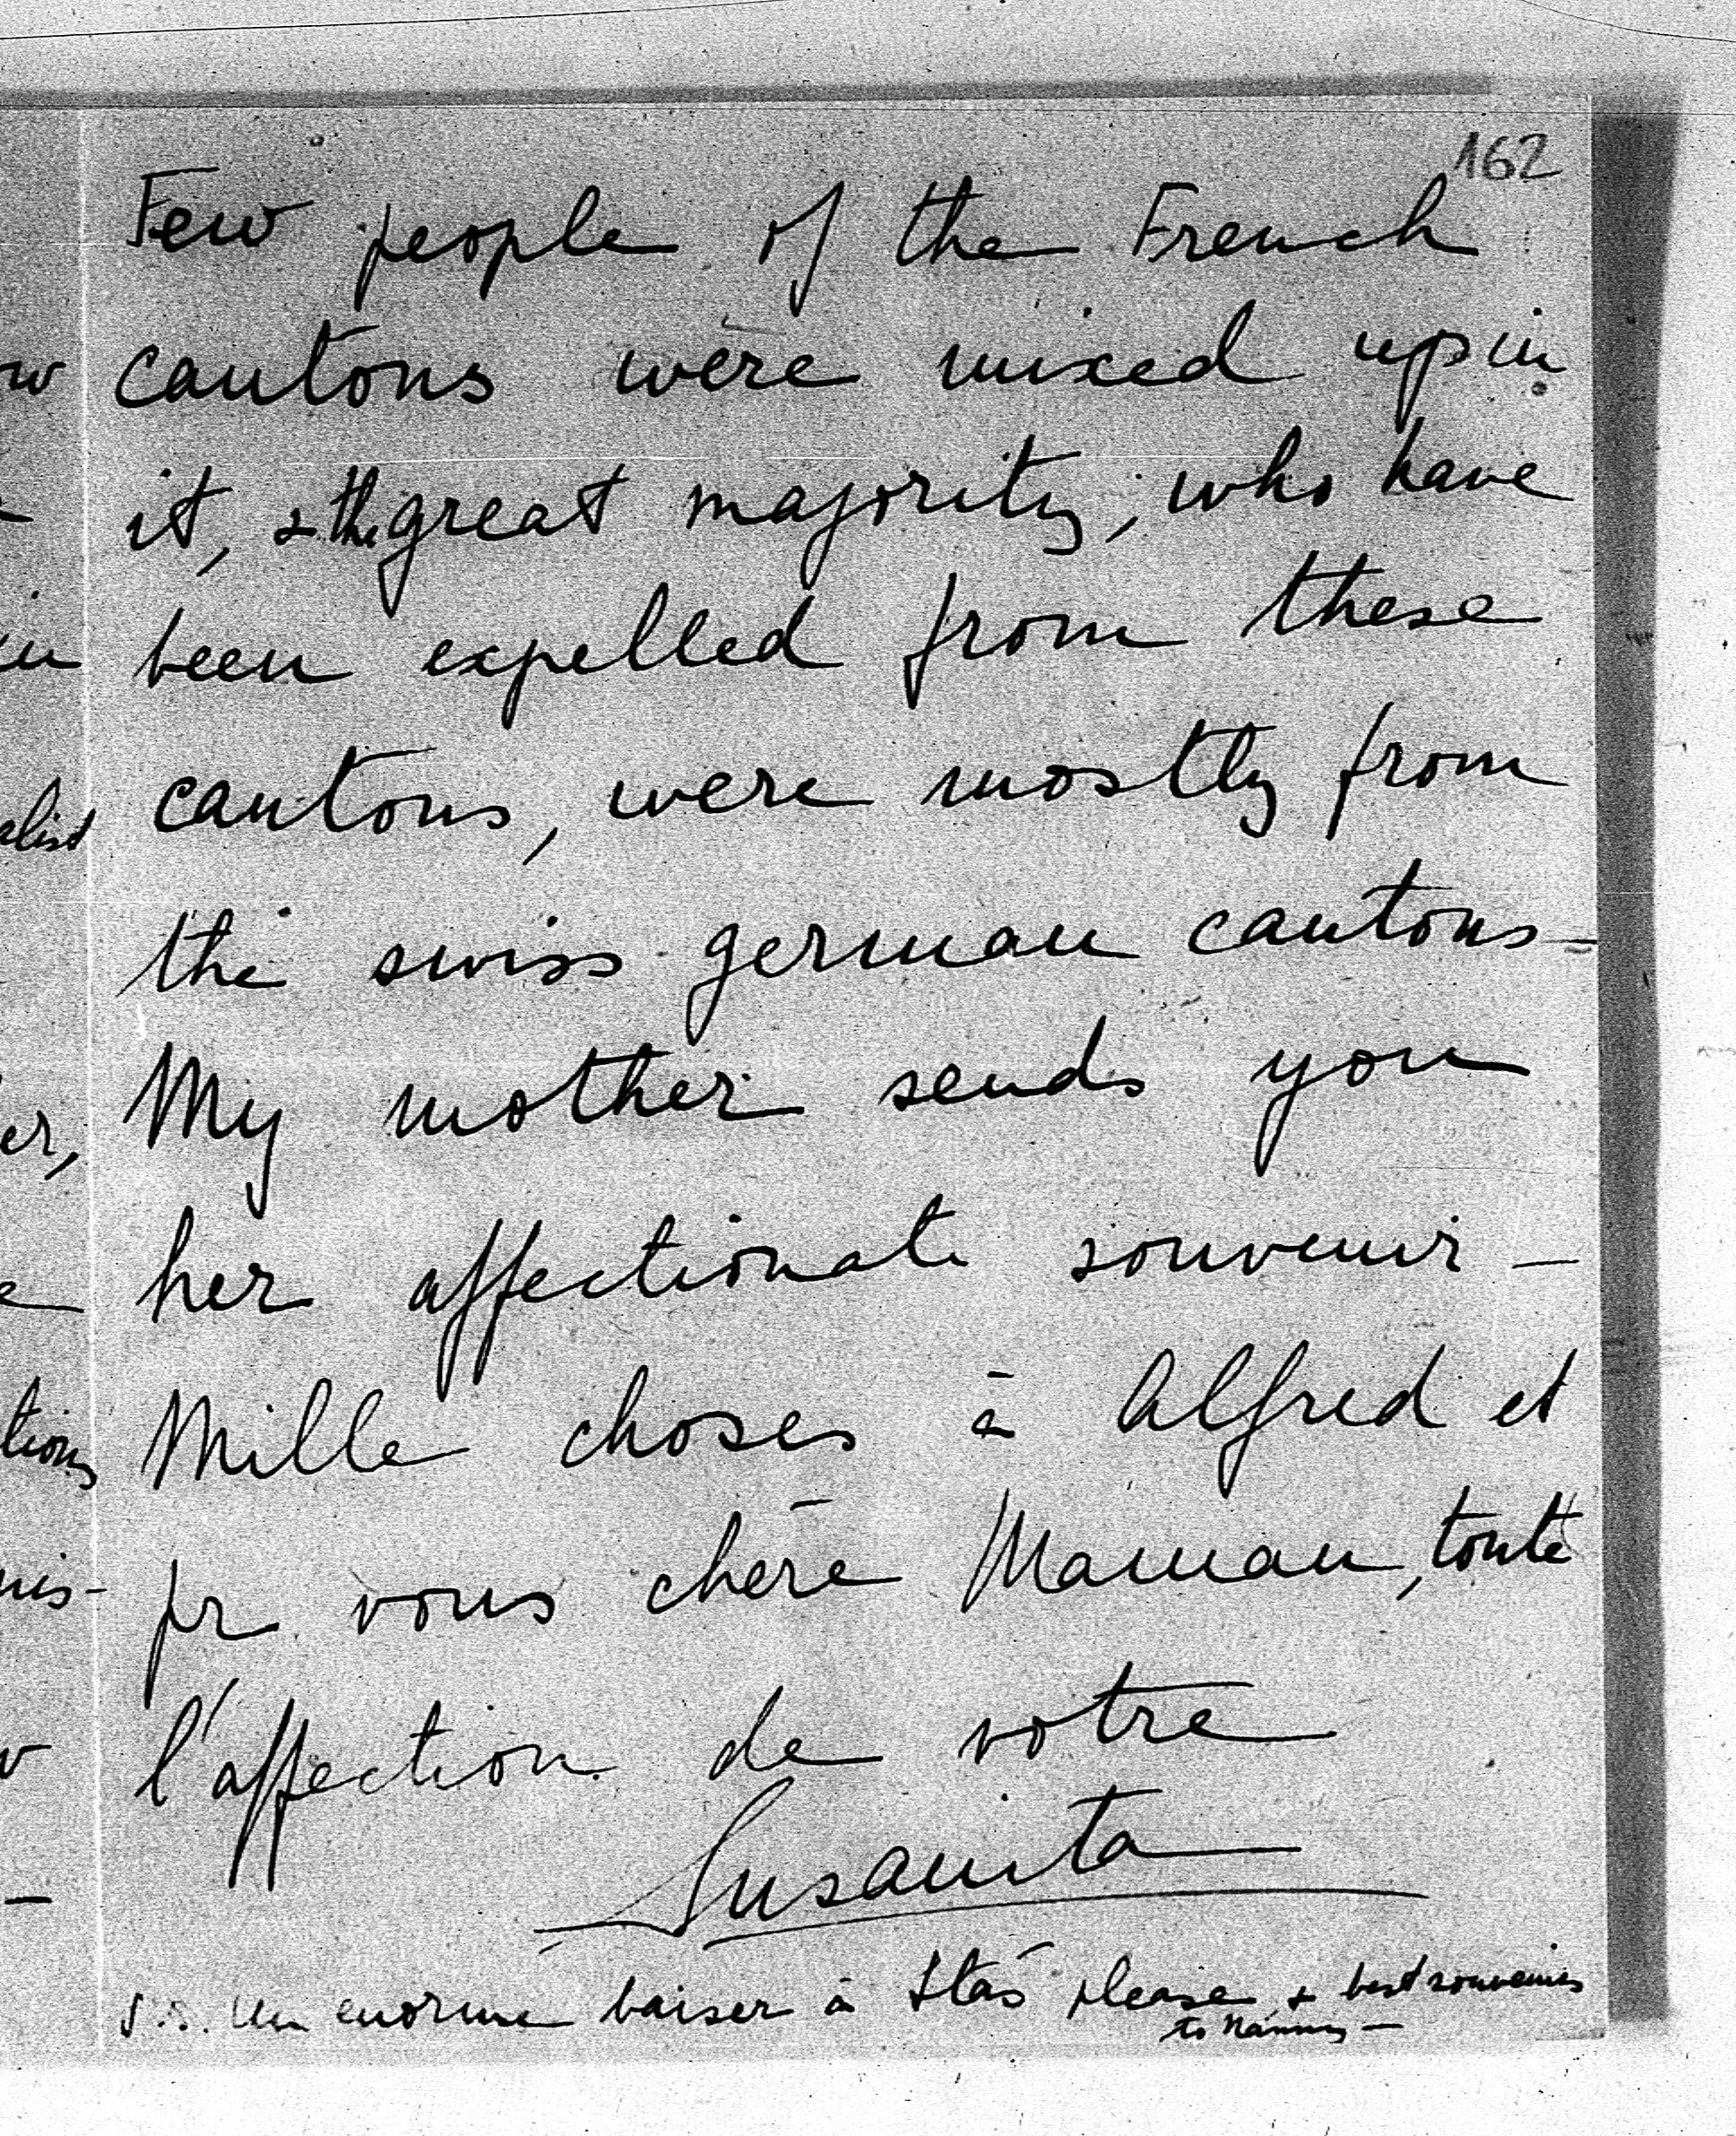 162
Few people of the French
cantons were mixed up in
it, & the great majority, who have
been expelled from these
cantons, were mostly from
the swiss german cantons -
My mother sends you
her affectionate souvenir -
Mille choses à Alfred et
pr vous chère Maman, toute
l'affection de votre
Susanita
Un enorme baiser à Stas please, & best souvenirs
to Nanny -